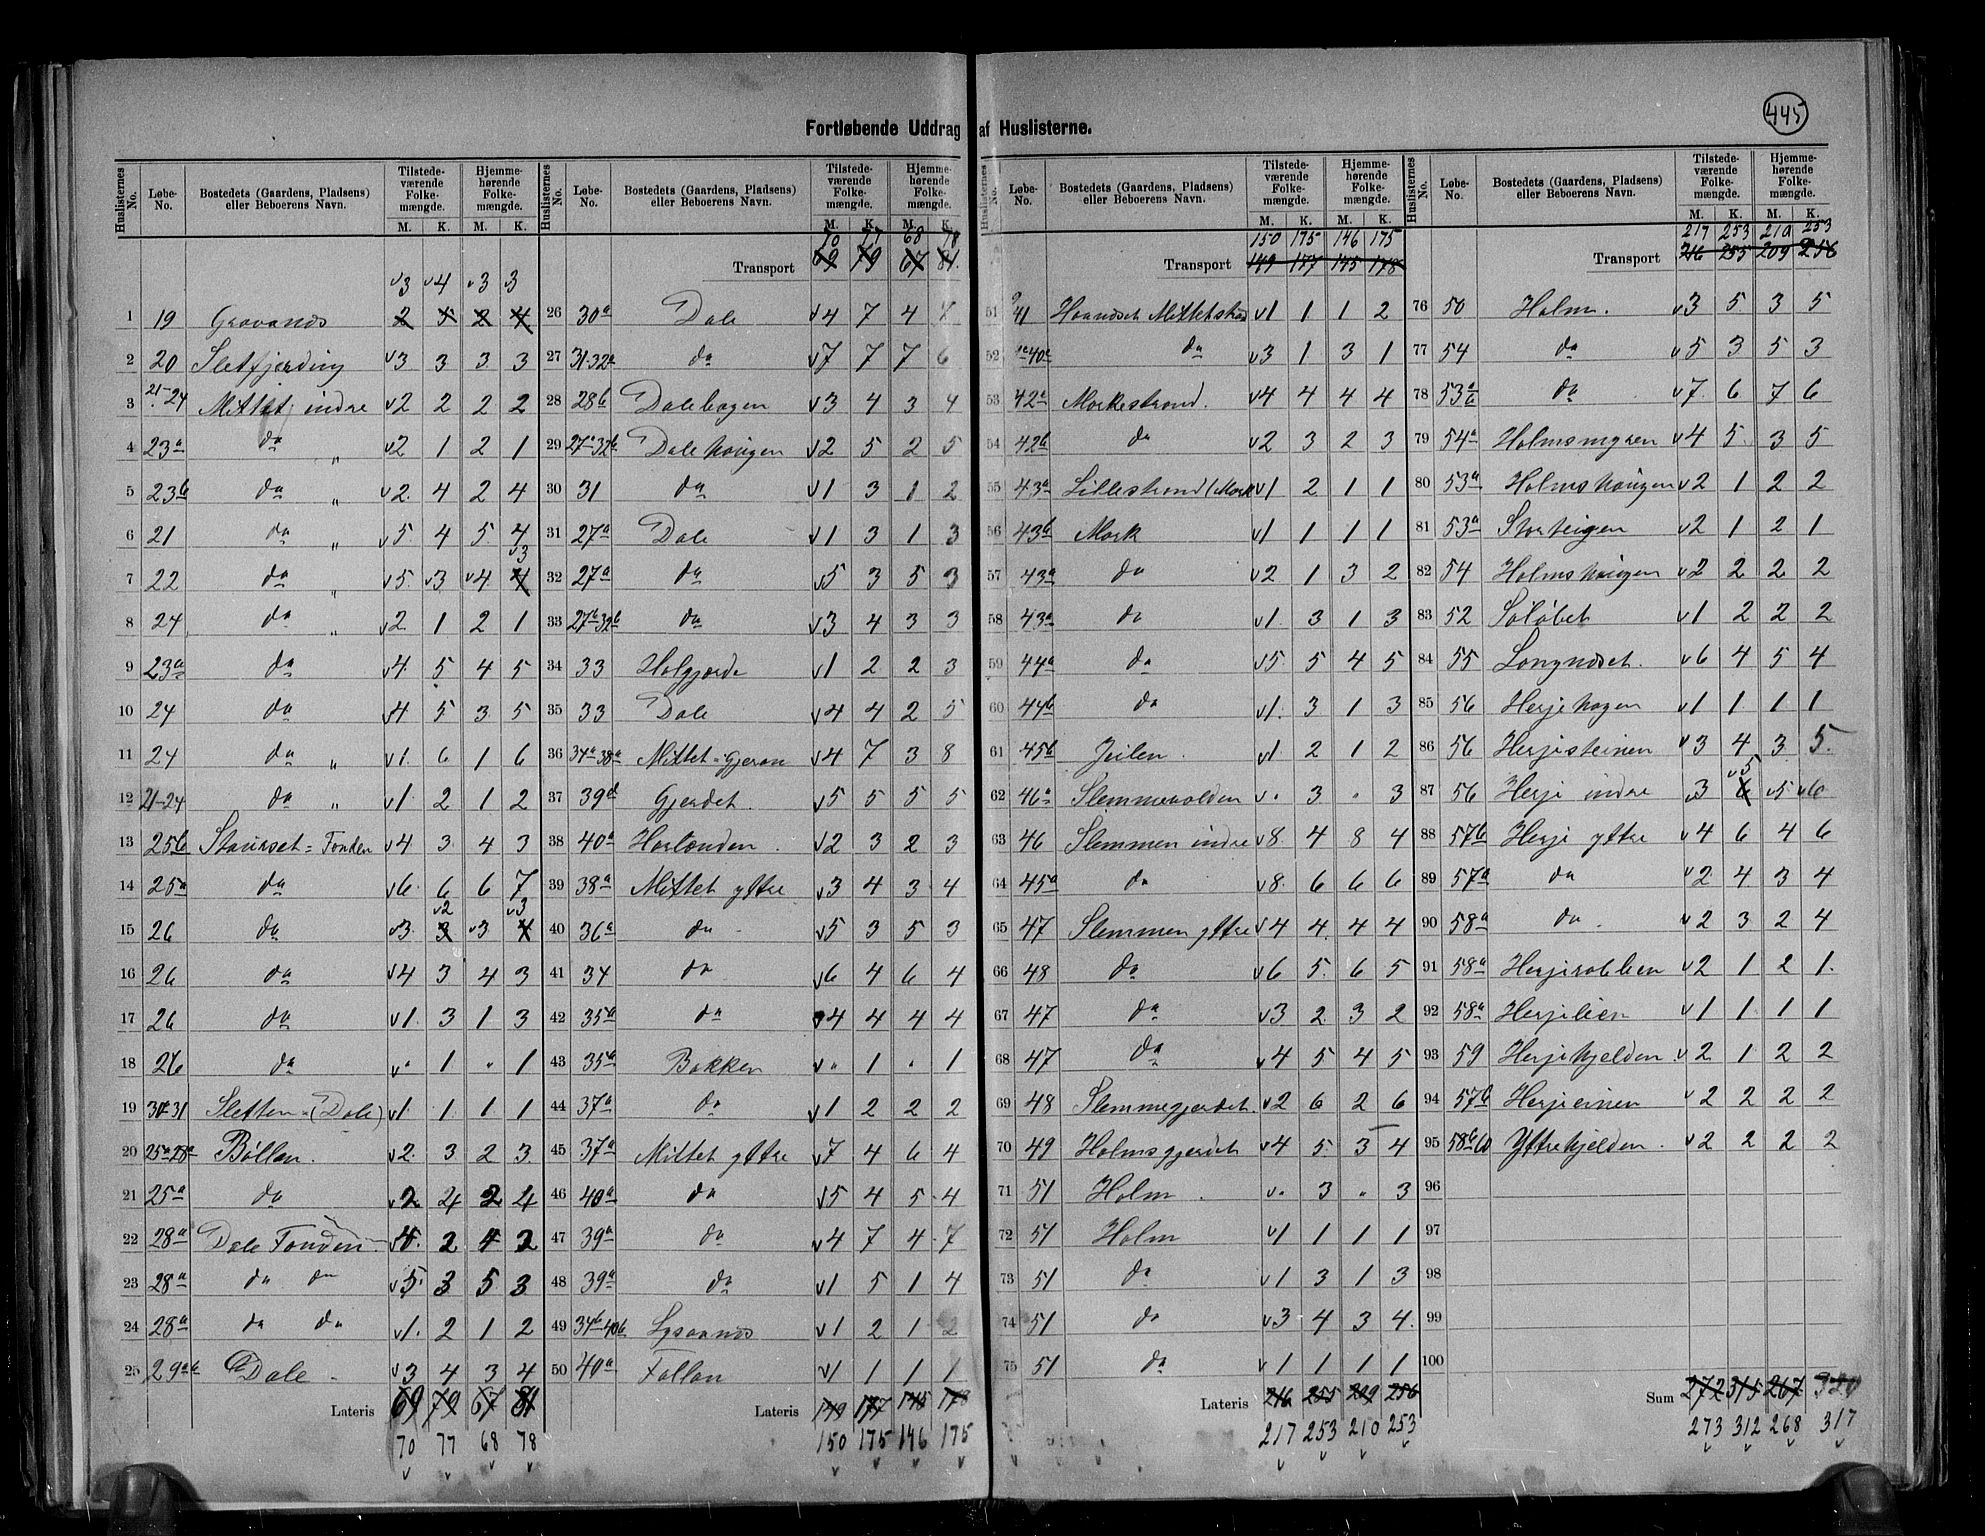 445
Fortløbende Uddrag af Huslisterne.
Huslisternes No. Løbe-No. Bostedets (Gaardens, Pladsens) eller Beboerens Navn. Tilstedeværende Folkemængde. M. K. Hjemmehørende Folkemængde. M. K.
v3 v4 v3 3
1 19 Gravanes 2 5 2 4
2 20 Sletfjerding v3 3 3 3
3 21-24 Mittet indre v2 2 2 2
4 23a da " v2 1 2 1
5 23b da " v2. 4 2 4
6 21 da " v5 4 5 4
7 22 da " v5. v3 v4 4 v3
8 24 da " v2 1 2 1
9 23a da v4 5 4 5
10 24 da v4 5 3 5
11 24 da " v1. 6 1 6
12 21-24 da " v1. 2 1 2
13 25b Staurset=Fonden v4 3 4 3
14 25a da v6. 6 6 7
15 26 da v3 3 v2 v3 4 v3
16 26 da v4 3 4 3
17 26 da v1. 3 1 3
18 26 da v" 1 " 1
19 30-31 Sletten=(Dale) v1 1 1 1
20 25a-28a Bøllan. v2. 3 2 3
21 25a da v2 4 2 4
22 28a Dale Fonden v4. 2 4 2
23 28a da da v5. 3 5 3
24 28a da da v1. 2 1 2
25 29ab Dale v3 4 3 4
Lateris 69 79 67 81
70 77 68 78
Huslisternes No. Løbe-No. Bostedets (Gaardens, Pladsens) eller Beboerens Navn. Tilstedeværende Folkemængde. M. K. Hjemmehørende Folkemængde. M. K.
70 77 68 78
Transport 69 79 67 81.
26 30a Dale v4 7 4 7
27 31-32a da v7 7 7 6
28 28b Dalehagen v3 4 3 4
29 27a-32b Dalehaugen v2 5 2 5
30 31 da v1 3 1 2
31 27a Dale v1 3 1 3
32 27a da v5 3 5 3
33 27b-32b da v3 4 3 3
34 33 Holgjerde v1 2 2 3
35 33 Dale v4 4 2 5
36 34a-38a Mittet=Gjeraa v4 7 3 8
37 39d Gjerdet. v5 5 5 5
38 40a v2 3 2 3
39 38a Mittet ytre v3 4 3 4
40 36a da v5 3 5 3
41 34 da v6 4 6 4
42 35a da v4 4 4 4
43 35b Bakken v" 1 " 1
44 37a da v1 2 2 2
45 37a Mittet ytre v7 4 6 4
46 40a da v5 4 5 4
47 39a da v4 7 4 7
48 39a da v1 5 1 4
49 34b-40b v1 2 1 2
50 40a Follan v1 1 1 1
Lateris 149 177 145 178
150 175 146 175
Huslisternes No. Løbe-No. Bostedets (Gaardens, Pladsens) eller Beboerens Navn. Tilstedeværende Folkemængde. M. K. Hjemmehørende Folkemængde. M. K.
150 175 146 175
Transport 149 177 145 178
51 41 v1 1 1 2
52 40a da v3 1 3 1
53 42a Morkestrand. v4 4 4 4
54 42b da v2 3 2 3
55 43a Lillestrand (Mork v1 2 1 1
56 43b Mork v1 1 1 1
57 43a da v2 1 3 2
58 43a da v1. 3 1 3
59 44a da v5. 5 4 5
60 44b da v1. 3 1 3
61 45b Jeilen. v1 2 1 2
62 46a Slemmevolden v" 3 " 3
63 46 Slemmen indre v8. 4 8 4
64 45a da v8. 6 6 6
65 47 Slemmen yttre v4 4. 4 4
66 48 da v6 5. 6 5
67 47 da v3 2 3 2
68 47 da v4 5 4 5
69 48 Slemmegjerdet. v2 6 2 6
70 49 Holmsgjerdet v4 5 3 4
71 51 Holm. v" 3 " 3
72 51 Holm v1 1 1 1
73 51 da v1 3 1 3
74 51 da v3 4 3 4.
75 51 da v1 1 1 1
Lateris 216 255 209 256
217 253 210 253
Huslisternes No. Løbe-No. Bostedets (Gaardens, Pladsens) eller Beboerens Navn. Tilstedeværende Folkemængde. M. K. Hjemmehørende Folkemængde. M. K.
217 253 210 253
Transport 216 255 209 256
76 50 Holm. v3 5 3 5
77 54 da v5 3 5 3
78 53a da v7. 6 7 6
79 54a Holmsmyren v4 5. 3 5
80 53a Holmshaugen v2 1 2 2
81 53a Storteigen v2 1 2 1
82 54 Holmshaugen v2 2 2 2
83 52 Soløbet v1 2 2 2
84 55 Longneset. v6 4 5 4
85 56 Herjehagen v1 1 1 1
86 56 Herjesteinen v3 4 3 5.
87 56 Herje indre v3 6 v5 v5 v6
88 57b Herje yttre v4 6 4 6
89 57a da v2 4 3 4
90 58a da. v2 3 2 4
91 58a v2 1 2 1.
92 58a Herjelien v1 1 1 1
93 59 Herjekjelden v2 1 2 2
94 57b v2 2 2 2
95 58b-60 Yttrekjelden. v2 2 2 2
96
97
98
99
100
Sum 272 315 267 320
273 312 268 317